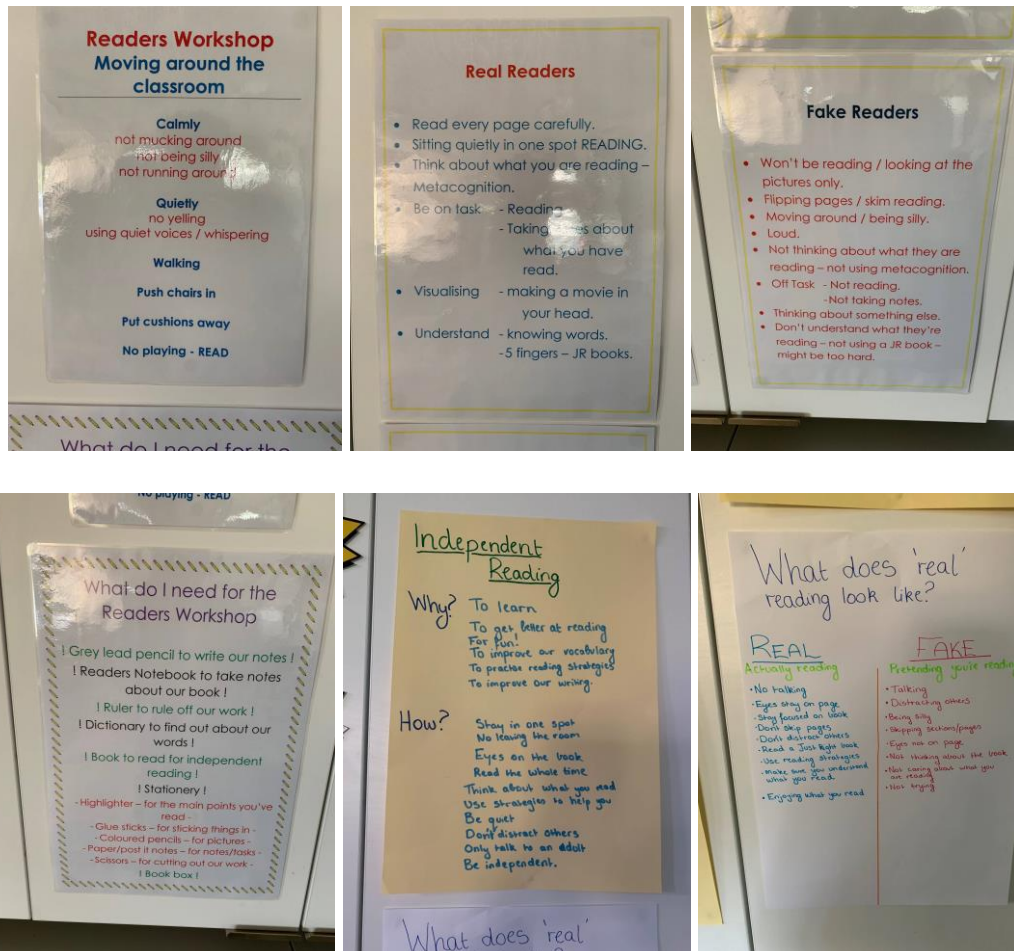 Readers Workshop
Moving around the
classroom
Calmly
not mucking around
not being silly
not running around
Quietly
no yelling
using quiet voices / whispering
Walking
Push chairs in
Put cushions away
No playing - READ
What do I need for the
Real Readers
• Read every page carefully.
• Sitting quietly in one spot READING.
• Think about what you are reading –
Metacognition.
• Be on task - Reading
- Taking about
what you have
read.
• Visualising - making a movie in
your head.
• Understand - knowing words.
-5 fingers – JR books.
Fake Readers
• Won't be reading / looking at the
pictures only.
• Flipping pages / skim reading.
• Moving around / being silly.
• Loud.
• Not thinking about what they are
reading – not using metacognition.
• Off Task - Not reading.
-Not taking notes.
• Thinking about something else.
• Don't understand what they're
reading – not using a JR book –
might be too hard.
No playing - READ
What do I need for the
Readers Workshop
! Grey lead pencil to write our notes !
! Readers Notebook to take notes
about our book !
! Ruler to rule off our work !
! Dictionary to find out about our
words !
! Book to read for independent
reading !
! Stationery !
- Highlighter – for the main points you've
read -
- Glue sticks – for sticking things in -
- Coloured pencils – for pictures -
- Paper/post it notes – for notes/tasks -
- Scissors – for cutting out our work -
! Book box !
Independent
Reading
Why? To learn
To get better at reading
For fun!
To improve our vocabulary
To practise reading strategies
To improve our writing.
How? Stay in one spot
No leaving the room
Eyes on the book
Read the whole time
Think about what you read
Use strategies to help you
Be quiet
Don't distract others
Only talk to an adult
Be independent.
What does 'real'
What does 'real'
reading look like?
REAL
Actually reading
• No talking
• Eyes stay on page
• Stay focused on book
• Don't skip pages
• Don't distract others
• Read a Just Right book
• Use reading strategies
• Make sure you understand
what you read.
• Enjoying what you read
FAKE
Pretending you're reading
• Talking
• Distracting others
• Being silly
• Skipping sections/pages
• Eyes not on page
• Not thinking about the book
• Not caring about what you
are reading
• Not trying